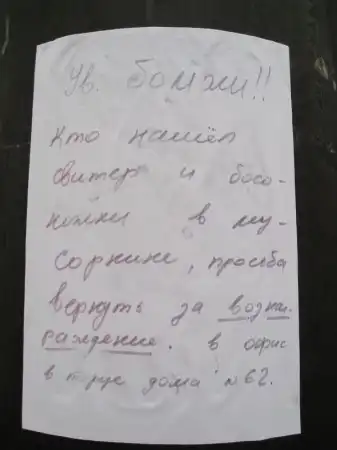 Ув. Бомжи!!
Кто нашёл
свитер и босо-
ножки в му-
сорнике, просьба
вернуть за возна-
раждение. в офис
в т рце дома №62.